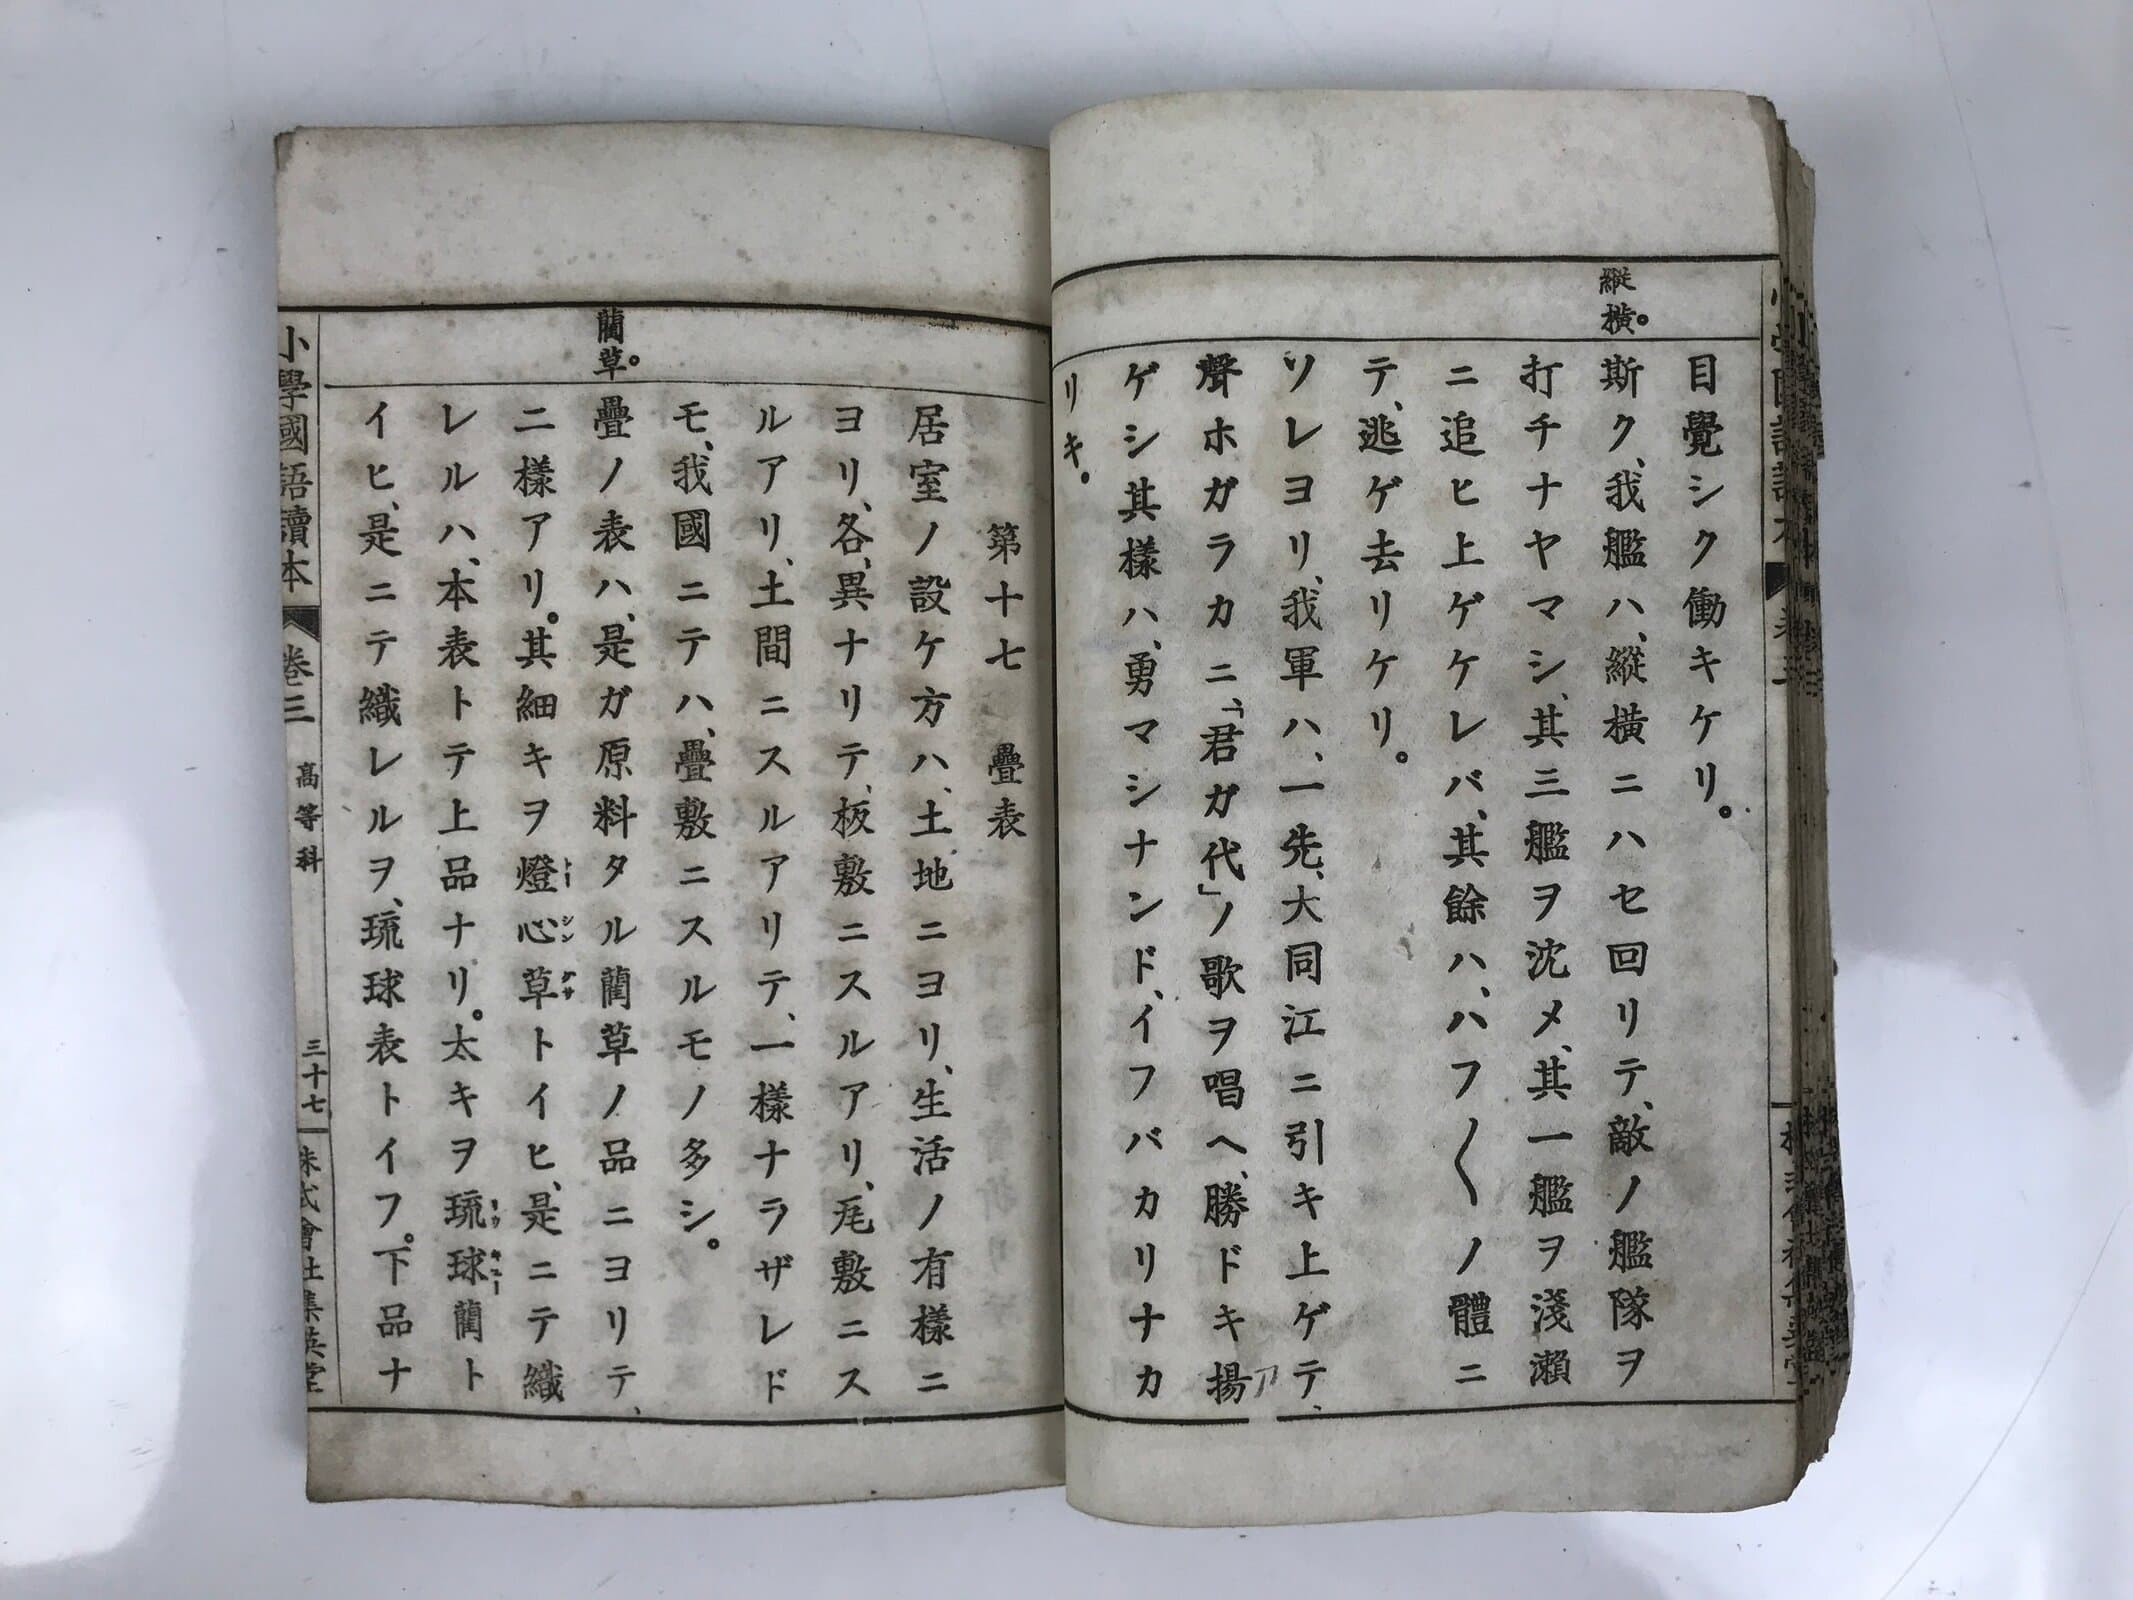 縱橫。
目覺シク働キケリ。
斯ク、我艦ハ、縱橫ニハセ回リテ、敵ノ艦隊ヲ
打チナヤマシ、其三艦ヲ沈メ、其一艦ヲ淺瀨
ニ追ヒ上ゲケレバ、其餘ハ、ハフ〱ノ體ニ
テ、逃ゲ去リケリ。
ソレヨリ、我軍ハ、一先、大同江ニ引キ上ゲテ、
聲ホガラカニ、「君ガ代」ノ歌ヲ唱ヘ、勝ドキ揚
ゲシ其樣ハ、勇マシナンド、イフバカリナカ
リキ。
藺草。
第十七 疊表
居室ノ設ケ方ハ、土地ニヨリ、生活ノ有樣ニ
ヨリ、各、異ナリテ、板敷ニスルアリ、瓦敷ニス
ルアリ、土間ニスルアリテ、一樣ナラザレド
モ、我國ニテハ、疊敷ニスルモノ多シ。
疊ノ表ハ、是ガ原料タル藺草ノ品ニヨリテ、
二樣アリ。其細キヲ燈心草トイヒ、是ニテ織
トーシングサ
レルハ、本表トテ上品ナリ。太キヲ琉球藺ト
リウキユー
イヒ、是ニテ織レルヲ、琉球表トイフ。下品ナ
小學國語讀本 卷三 高等科 三十七 株式會社集英堂